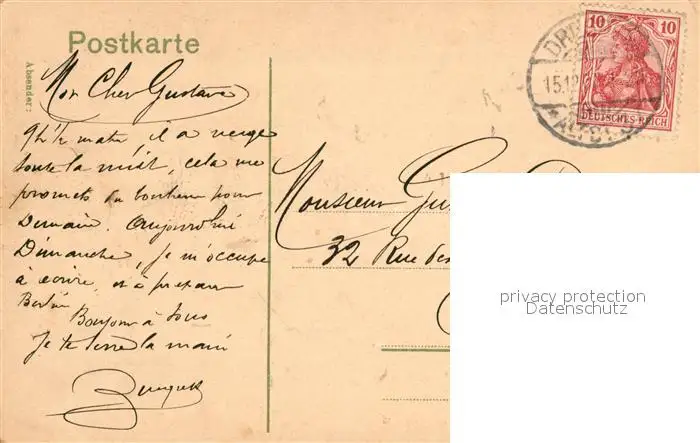 Postkarte
Absender:
Mon Cher Gustave
9h ½ matin, il a neigé
toute la nuit, cela me
promets du bonheur pour
Demain. Aujourd'hui
Dimanche, je m'occupe
à écrire, et à
Berlin
Bonjour à tous
Je te serre la main
10 10
DEUTSCHES REICH
DR
15.12
ALTST.
Monsieur Gu
32 Rue des
privacy protection
Datenschutz